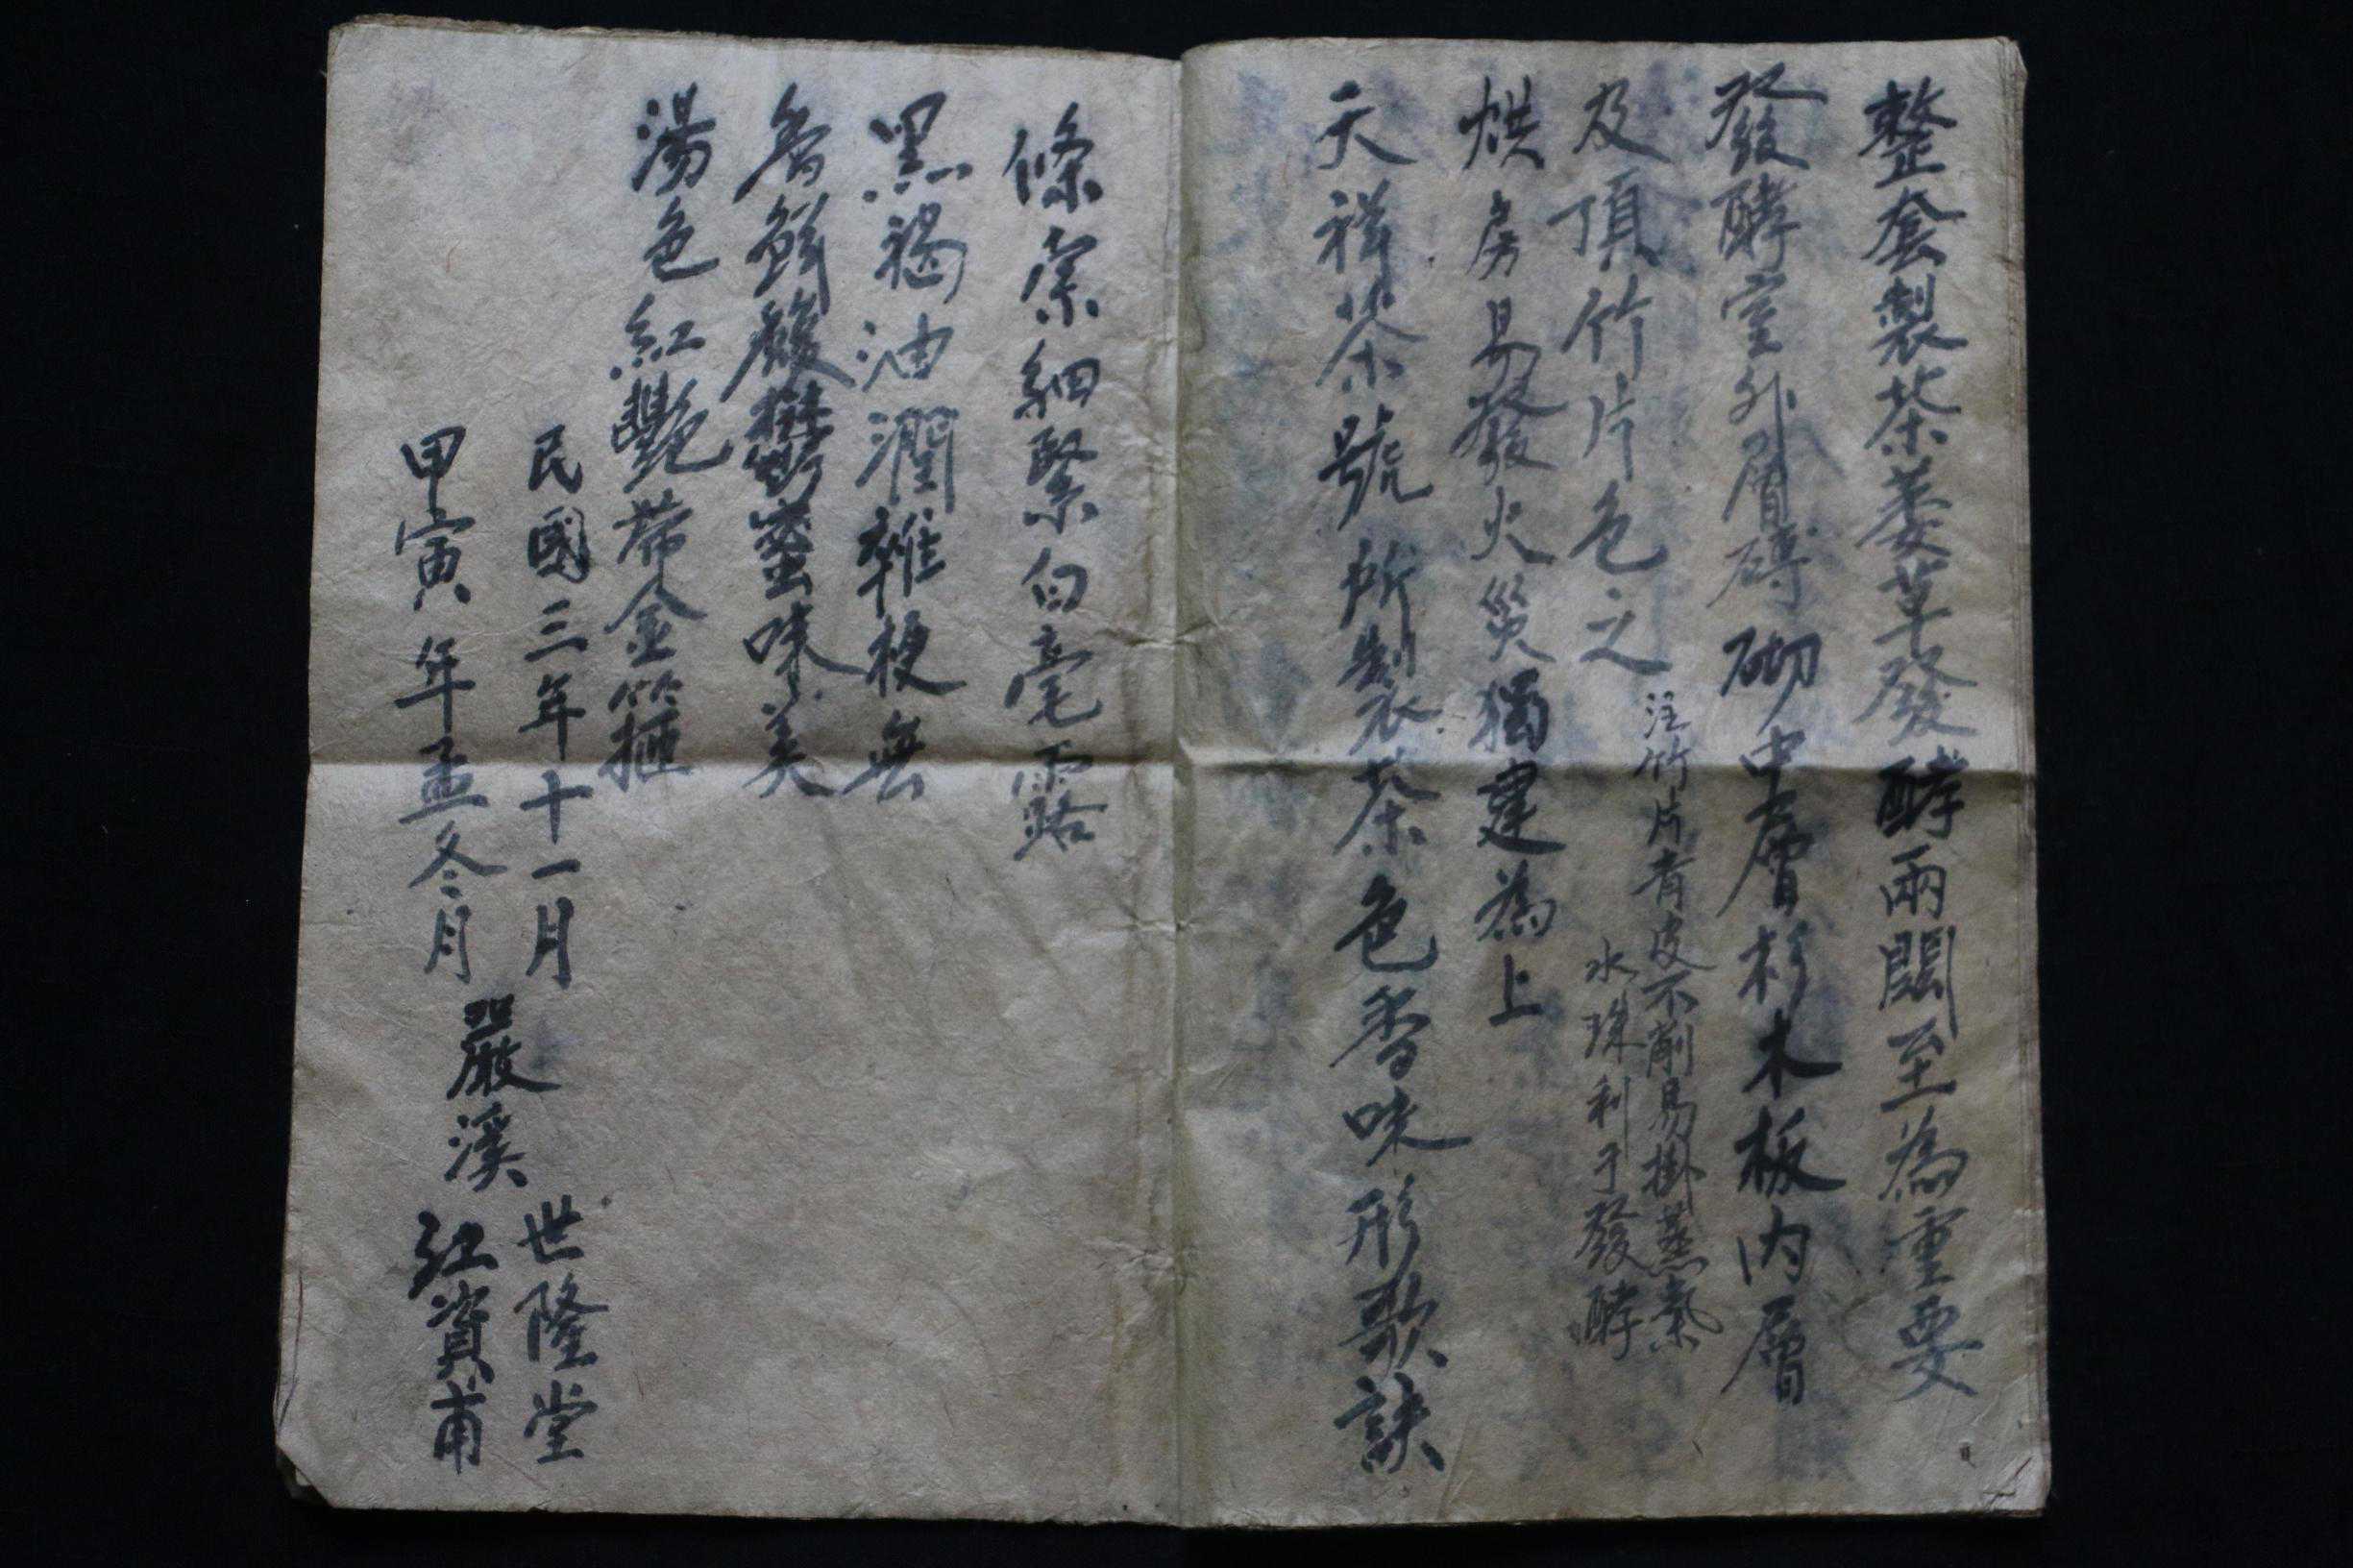 整套製茶萎草發酵兩關至為重要
發酵室外層磚砌中層杉木板內層
及頂竹片色之
注竹片青皮不削易掛蒸氣
水珠利于發酵
烘房易發火災獨建為上
天祥茶號所製茶色香味形歌訣
條索細緊白毫露
黑褐油潤雜梗無
香鮮馥郁蜜味美
湯色紅艷帶金箍
民國三年十一月
甲寅年孟冬月
嚴溪
世隆堂
江資甫